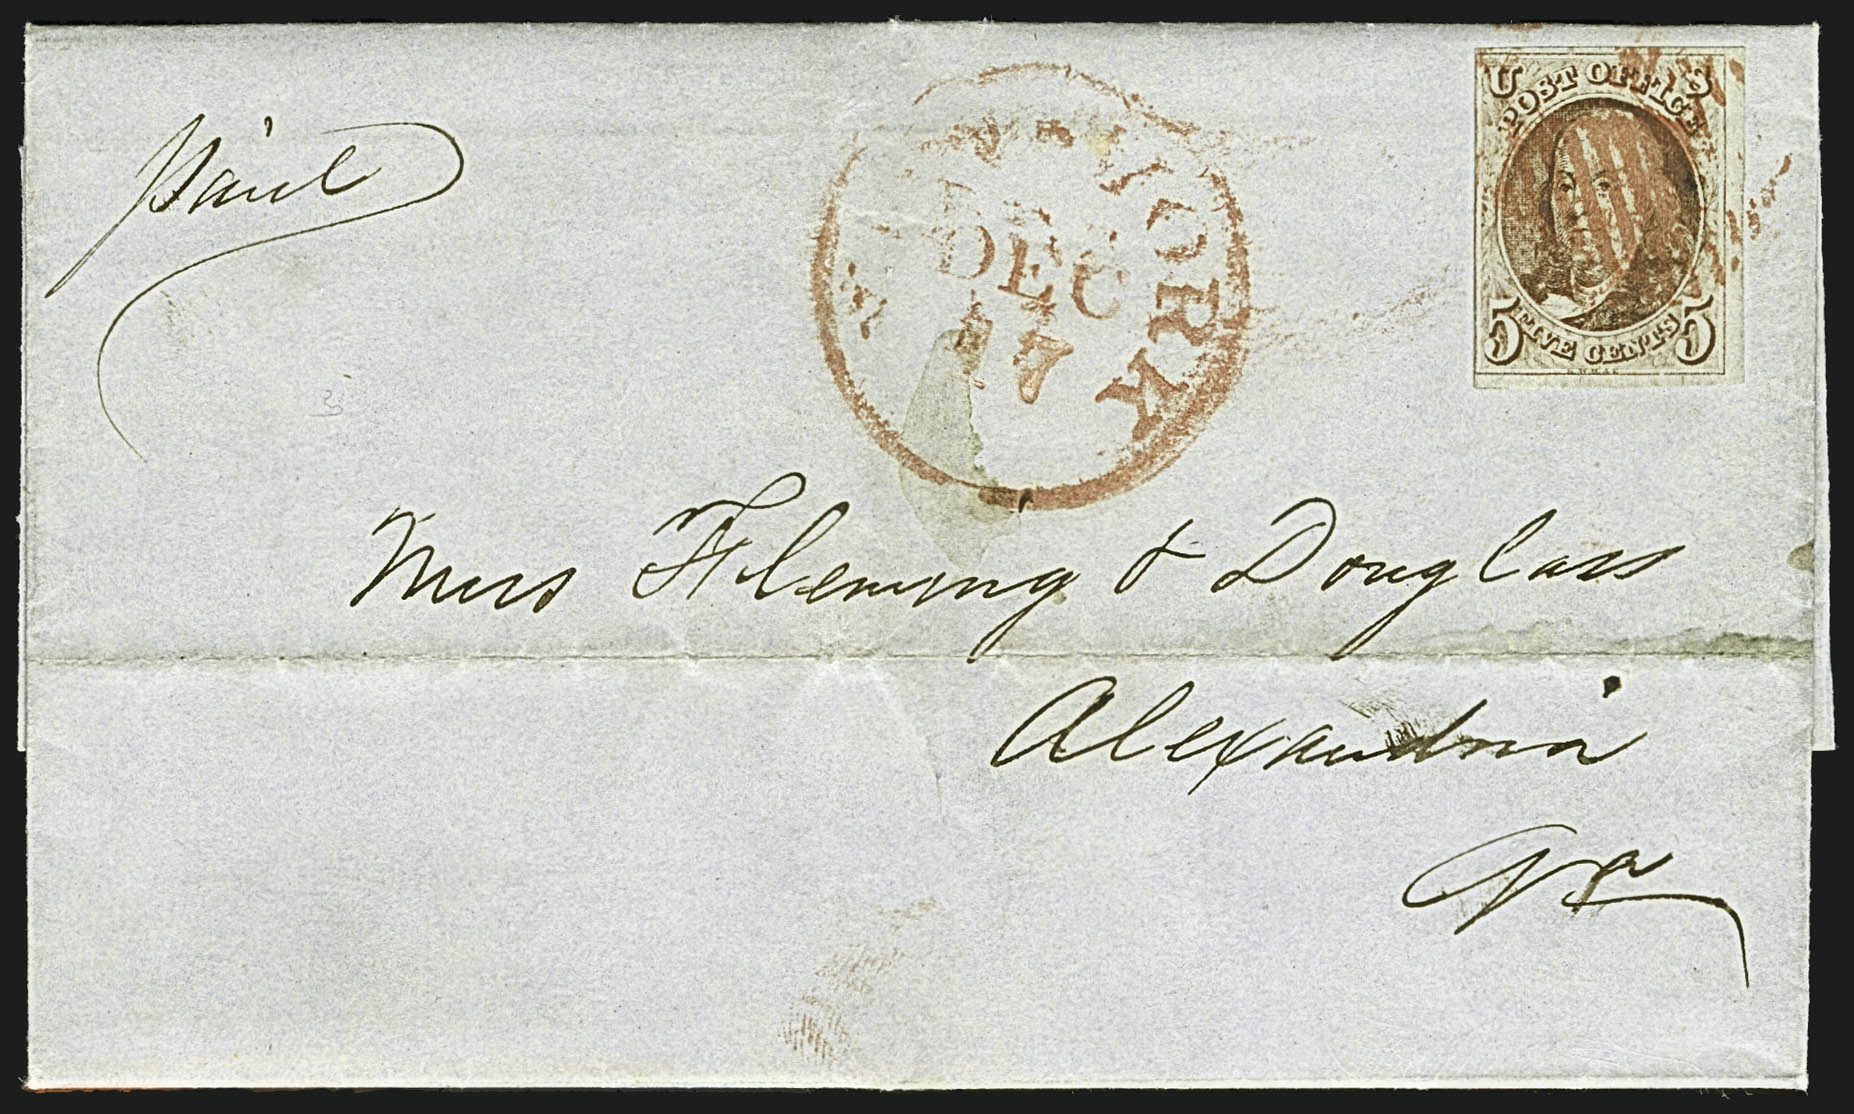 Paid
NEW YORK
DEC
17
U S
POST OFFICE
5 FIVE CENTS 5
Mess Fleming & Douglass
Alexandria
Va